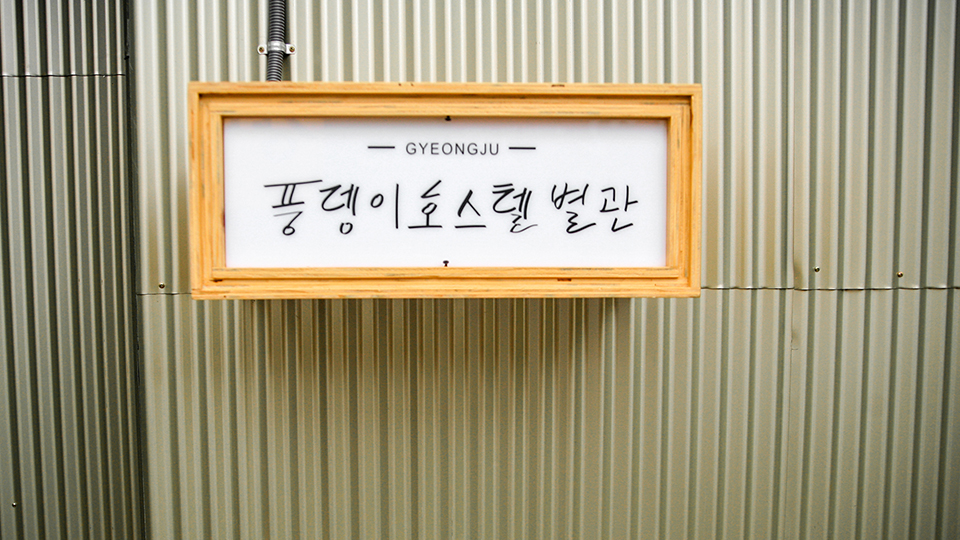 GYEONGJU
풍뎅이호스텔별관